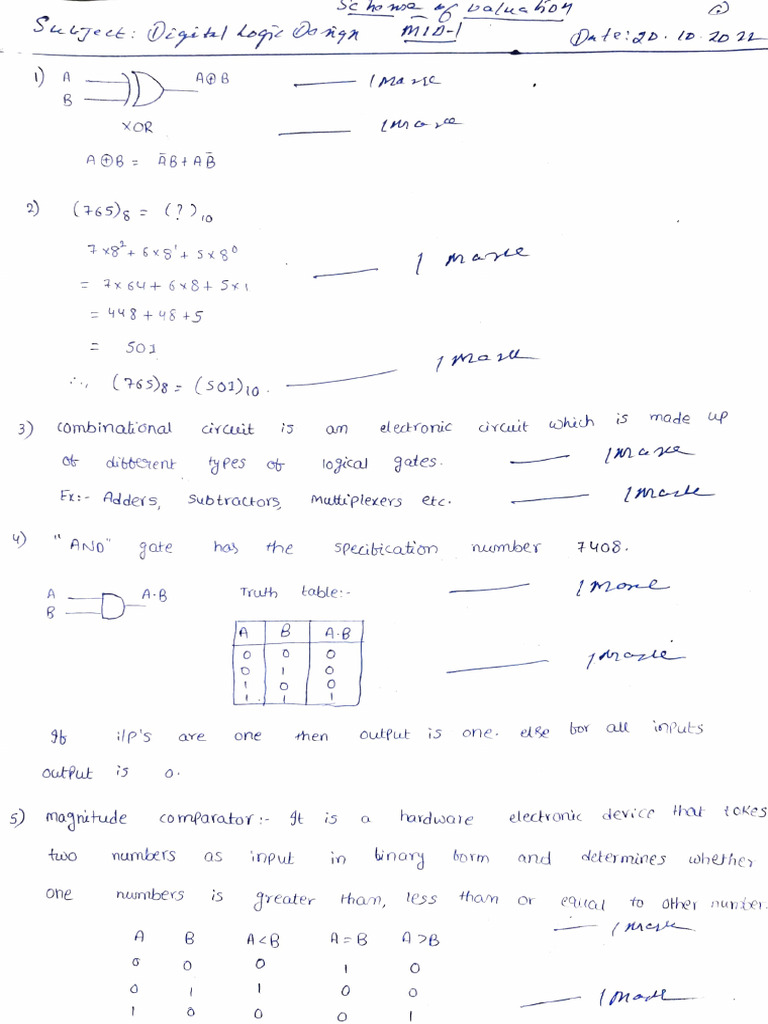 Scheme of Valuation
Subject: Digital Logic Design MID-1 Date: 20.10.2022
1) A B A⊕B — 1 Mark
XOR — 1 Mark
A⊕B = A̅B + AB̅
2) (765)₈ = (?)₁₀
7×8² + 6×8¹ + 5×8⁰ — 1 Mark
= 7×64 + 6×8 + 5×1
= 448 + 48 + 5
= 501
∴, (765)₈ = (501)₁₀. — 1 Mark
3) Combinational circuit is an electronic circuit which is made up
of different types of logical gates. — 1 Mark
Ex:- Adders, subtractors, multiplexers etc. — 1 Mark
4) "AND" gate has the specification number 7408.
A B A·B Truth table:- — 1 Mark
A B A·B
0 0 0
0 1 0 — 1 Mark
1 0 0
1 1 1
If i/p's are one then output is one. else for all inputs
output is 0.
5) magnitude comparator:- It is a hardware electronic device that takes
two numbers as input in binary form and determines whether
one numbers is greater than, less than or equal to other number.
— 1 Mark
A B A<B A=B A>B
0 0 0 1 0
0 1 1 0 0 — 1 Mark
1 0 0 0 1